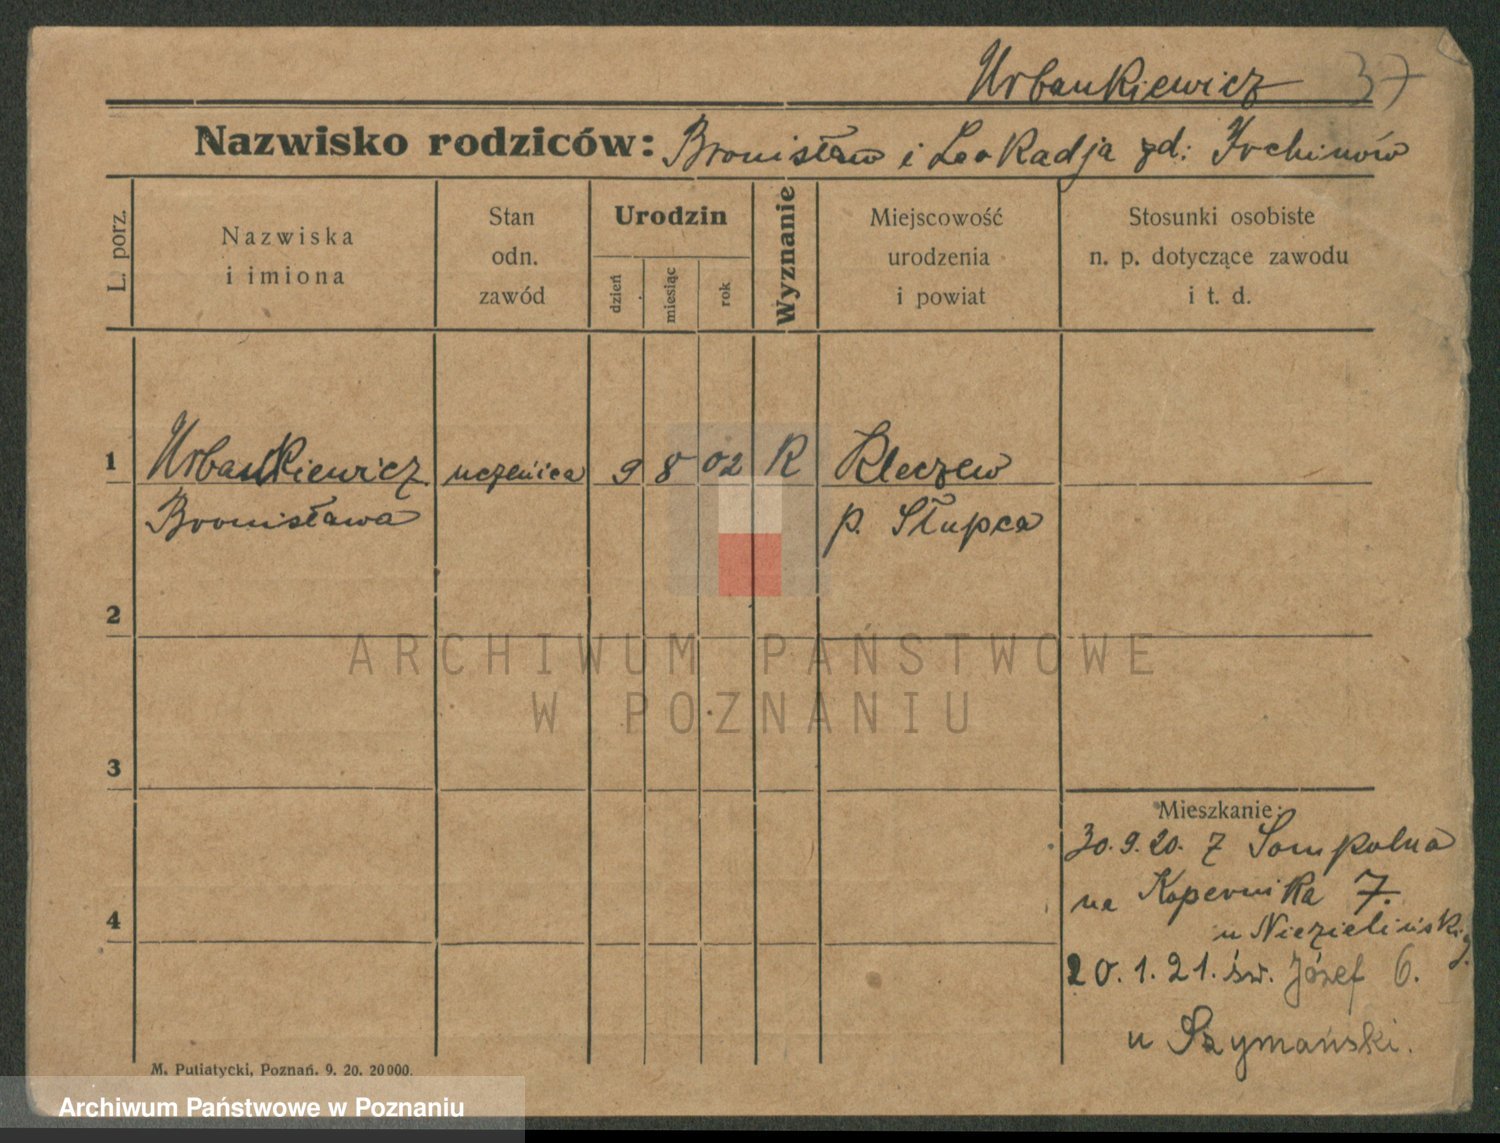 Urbankiewicz 37
Nazwisko rodziców: Bronisław i Leokadja zd:
L. porz.
Nazwiska
i imiona
Stan
odn.
zawód
Urodzin
dzień
miesiąc
rok
Wyznanie
Miejscowość
urodzenia
i powiat
Stosunki osobiste
n. p. dotyczące zawodu
i t. d.
1 Urbankiewicz uczenica 9 8 02 R Kleczew
Bronisława p. Słupca
2
ARCHIWUM PAŃSTWOWE
W POZNANIU
3
Mieszkanie:
30.9.20. z Sompolna
4 na Kopernika 7.
u Niezielińskiej
20.1.21. św. Józef 6.
u Szymański.
M. Putiatycki, Poznań. 9. 20. 20000.
Archiwum Państwowe w Poznaniu